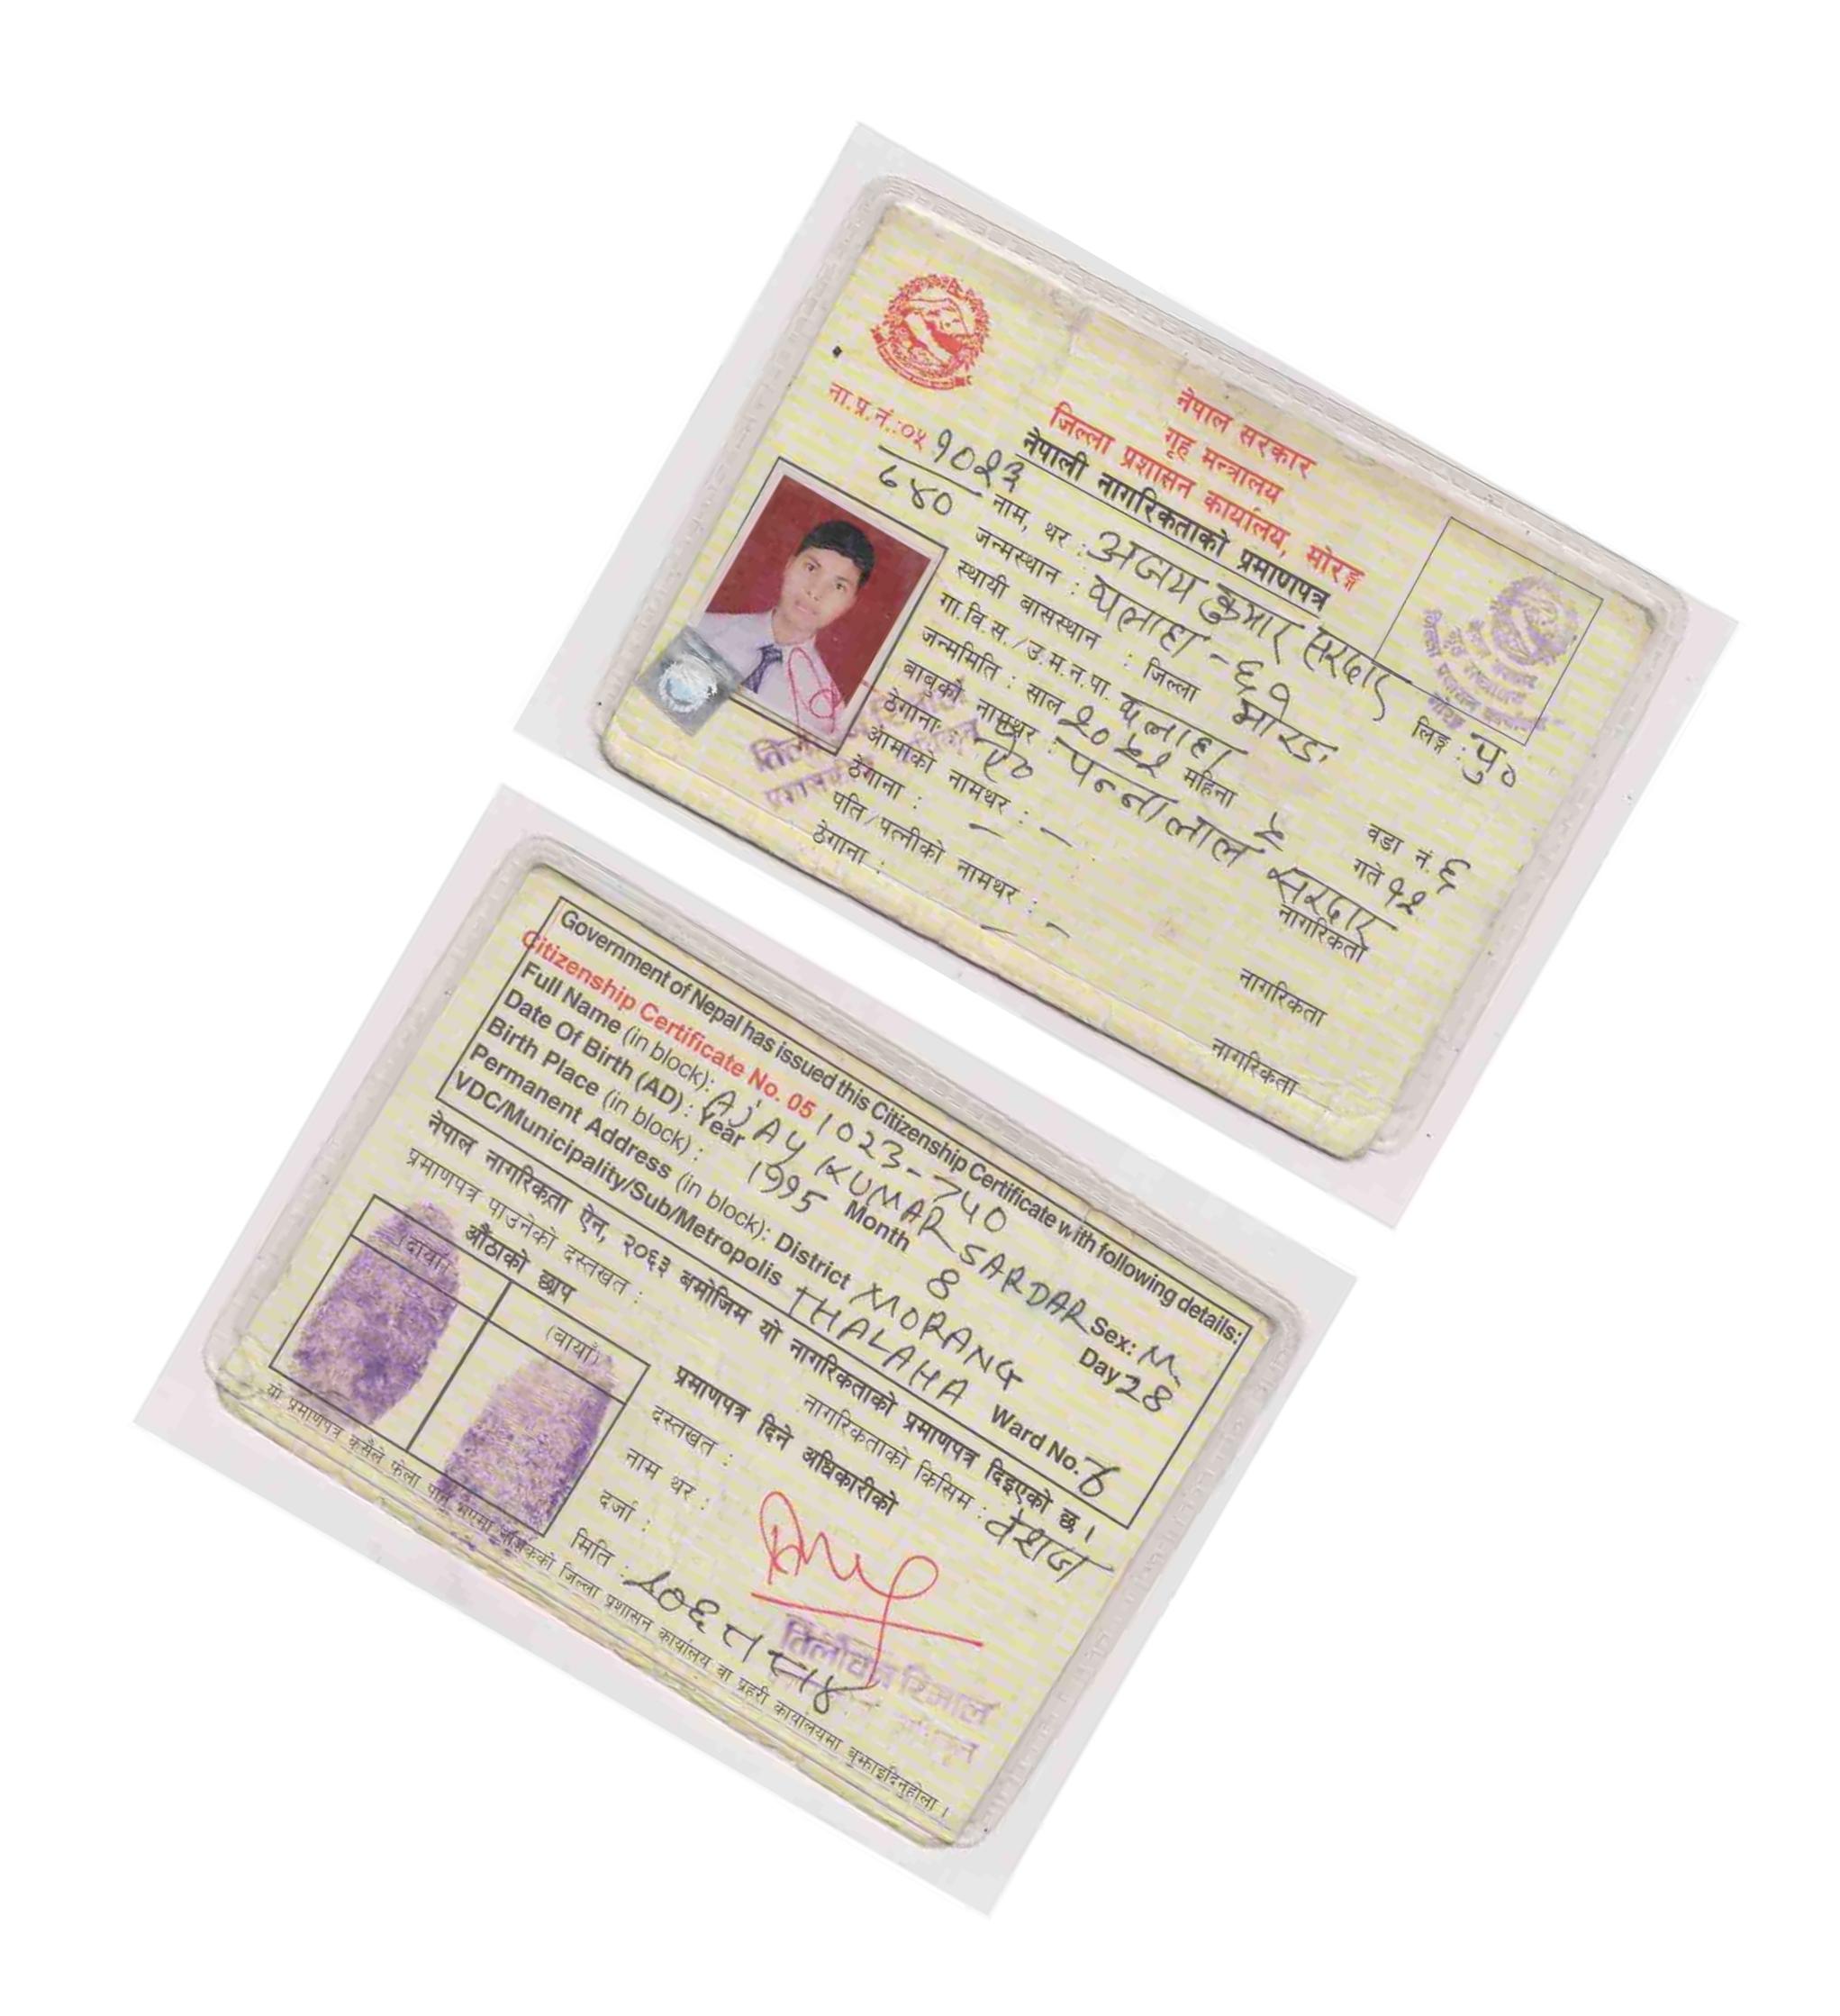 नेपाल सरकार
गृह मन्त्रालय
जिल्ला प्रशासन कार्यालय, मोरङ्ग
नेपाली नागरिकताको प्रमाणपत्र
ना.प्र.नं.:०५ १०२३
७४०
नाम, थर : अजय कुमार सरदार लिङ्ग : पु०
जन्मस्थान : थलाहा - ६
स्थायी बासस्थान : जिल्ला मोरङ
गा.वि.स./उ.म.न.पा. थलाहा वडा नं. ६
जन्ममिति : साल २०५२ महिना ५ गते १२
बाबुको नामथर : पन्नालाल सरदार
ठेगाना : ऐ० नागरिकता
आमाको नामथर : -
ठेगाना : - नागरिकता
पति/पत्नीको नामथर : -
ठेगाना : - नागरिकता
Government of Nepal has issued this Citizenship Certificate with following details:
Citizenship Certificate No. 05 1023-740
Full Name (in block): AJAY KUMAR SARDAR Sex: M
Date Of Birth (AD) : Year 1995 Month 8 Day 28
Birth Place (in block) :
Permanent Address (in block): District MORANG
VDC/Municipality/Sub/Metropolis THALAHA Ward No. 6
नेपाल नागरिकता ऐन, २०६३ बमोजिम यो नागरिकताको प्रमाणपत्र दिइएको छ।
प्रमाणपत्र पाउनेको दस्तखत : नागरिकताको किसिम : वंशज
औंठाको छाप
(दायाँ) (बायाँ)
प्रमाणपत्र दिने अधिकारीको
दस्तखत :
नाम थर :
दर्जा :
मिति :
यो प्रमाणपत्र कसैले फेला पारी भएमा नजिकको जिल्ला प्रशासन कार्यालय वा प्रहरी कार्यालयमा बुझाइदिनुहोला।